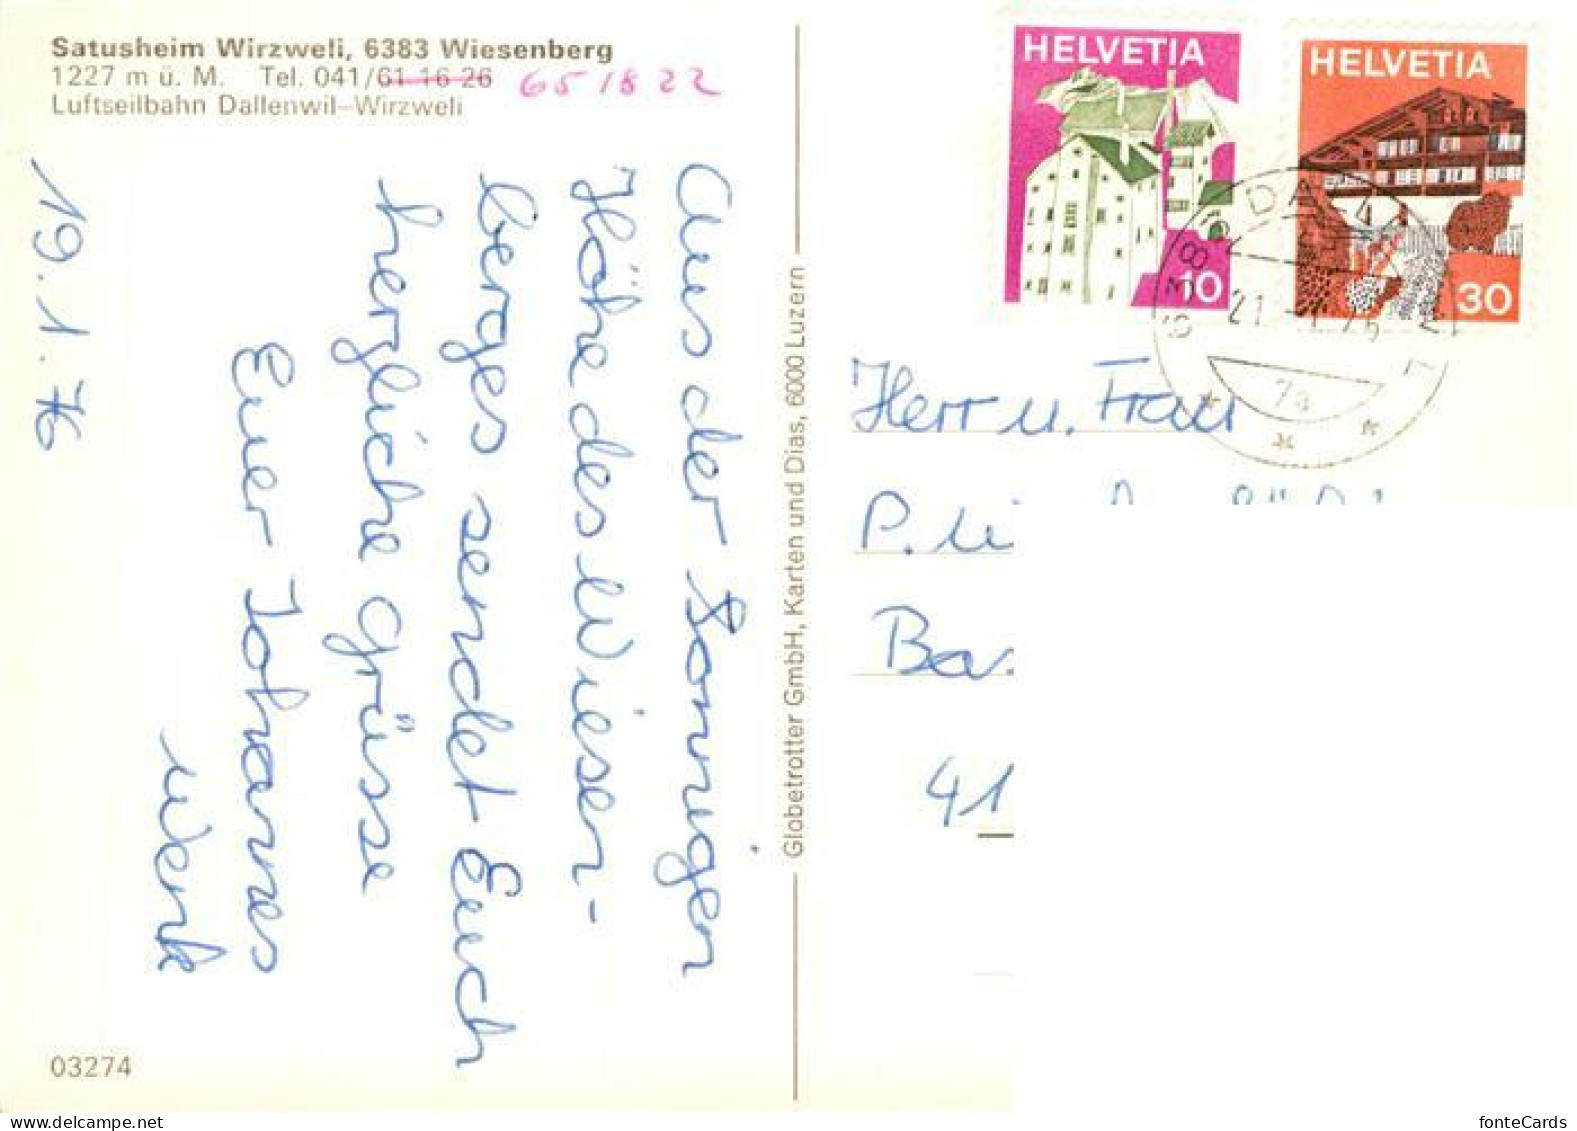 Satusheim Wirzweli, 6383 Wiesenberg
1227 m ü. M. Tel. 041/61 16 26 65 18 22
Luftseilbahn Dallenwil–Wirzweli
19.1.76
Aus der Sonnigen
Höhe des Wiesen-
berges sendet Euch
herzliche Grüsse
Euer Johannes
Werk
03274
Globetrotter GmbH, Karten und Dias, 6000 Luzern
HELVETIA
10
HELVETIA
30
7a
Herr u. Frau
P.
41
fonteCards